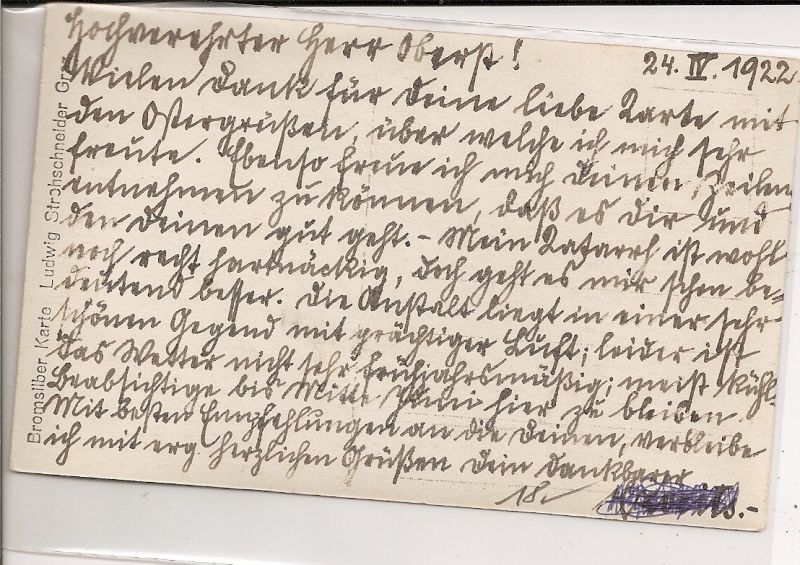 Hochverehrter Herr Oberst!
24. IV. 1922
Vielen Dank für Deine liebe Karte mit
den Ostergrüßen, über welche ich mich sehr
freute. Ebenso freue ich mich Deinen Zeilen
entnehmen zu können, daß es Dir und
den Deinen gut geht. – Mein Katarrh ist wohl
noch recht hartnäckig, doch geht es mir schon be=
deutend besser. Die Anstalt liegt in einer sehr
schönen Gegend mit prächtiger Luft; leider ist
das Wetter nicht sehr frühjahrsmäßig; meist kühl.
Beabsichtige bis Mitte Juni hier zu bleiben
Mit besten Empfehlungen an die Deinen, verbleibe
ich mit erg. herzlichen Grüßen Dein dankbarer
Bromsilber Karte Ludwig Strohschneider